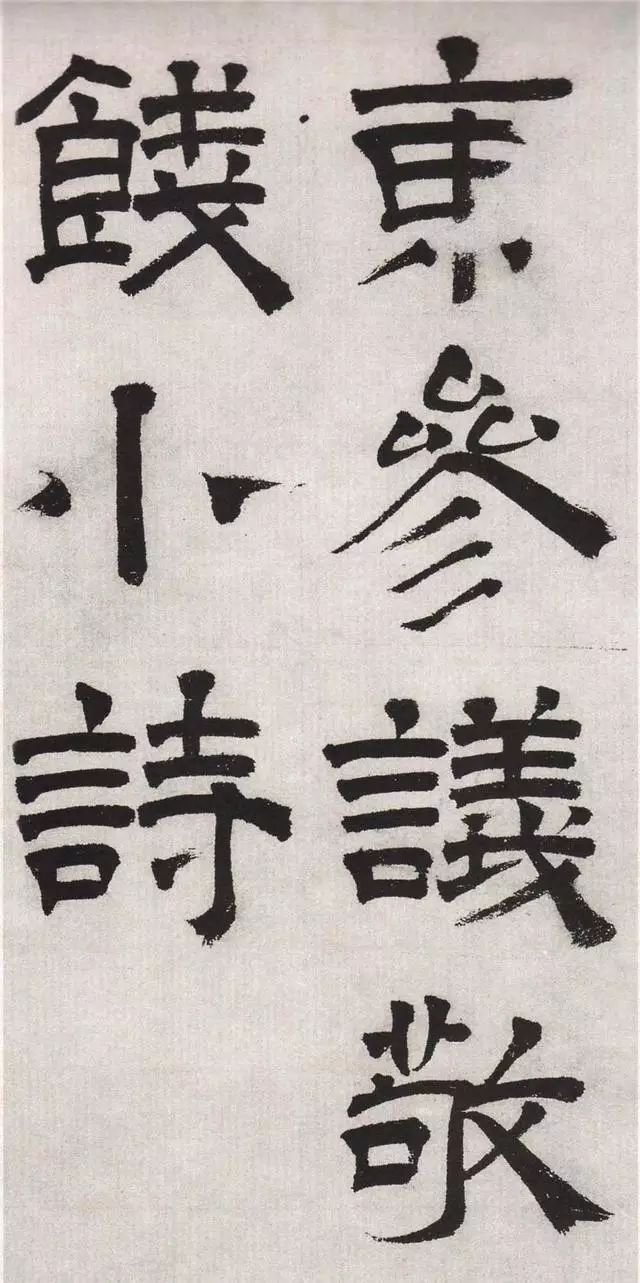 京參議敬
餞小詩